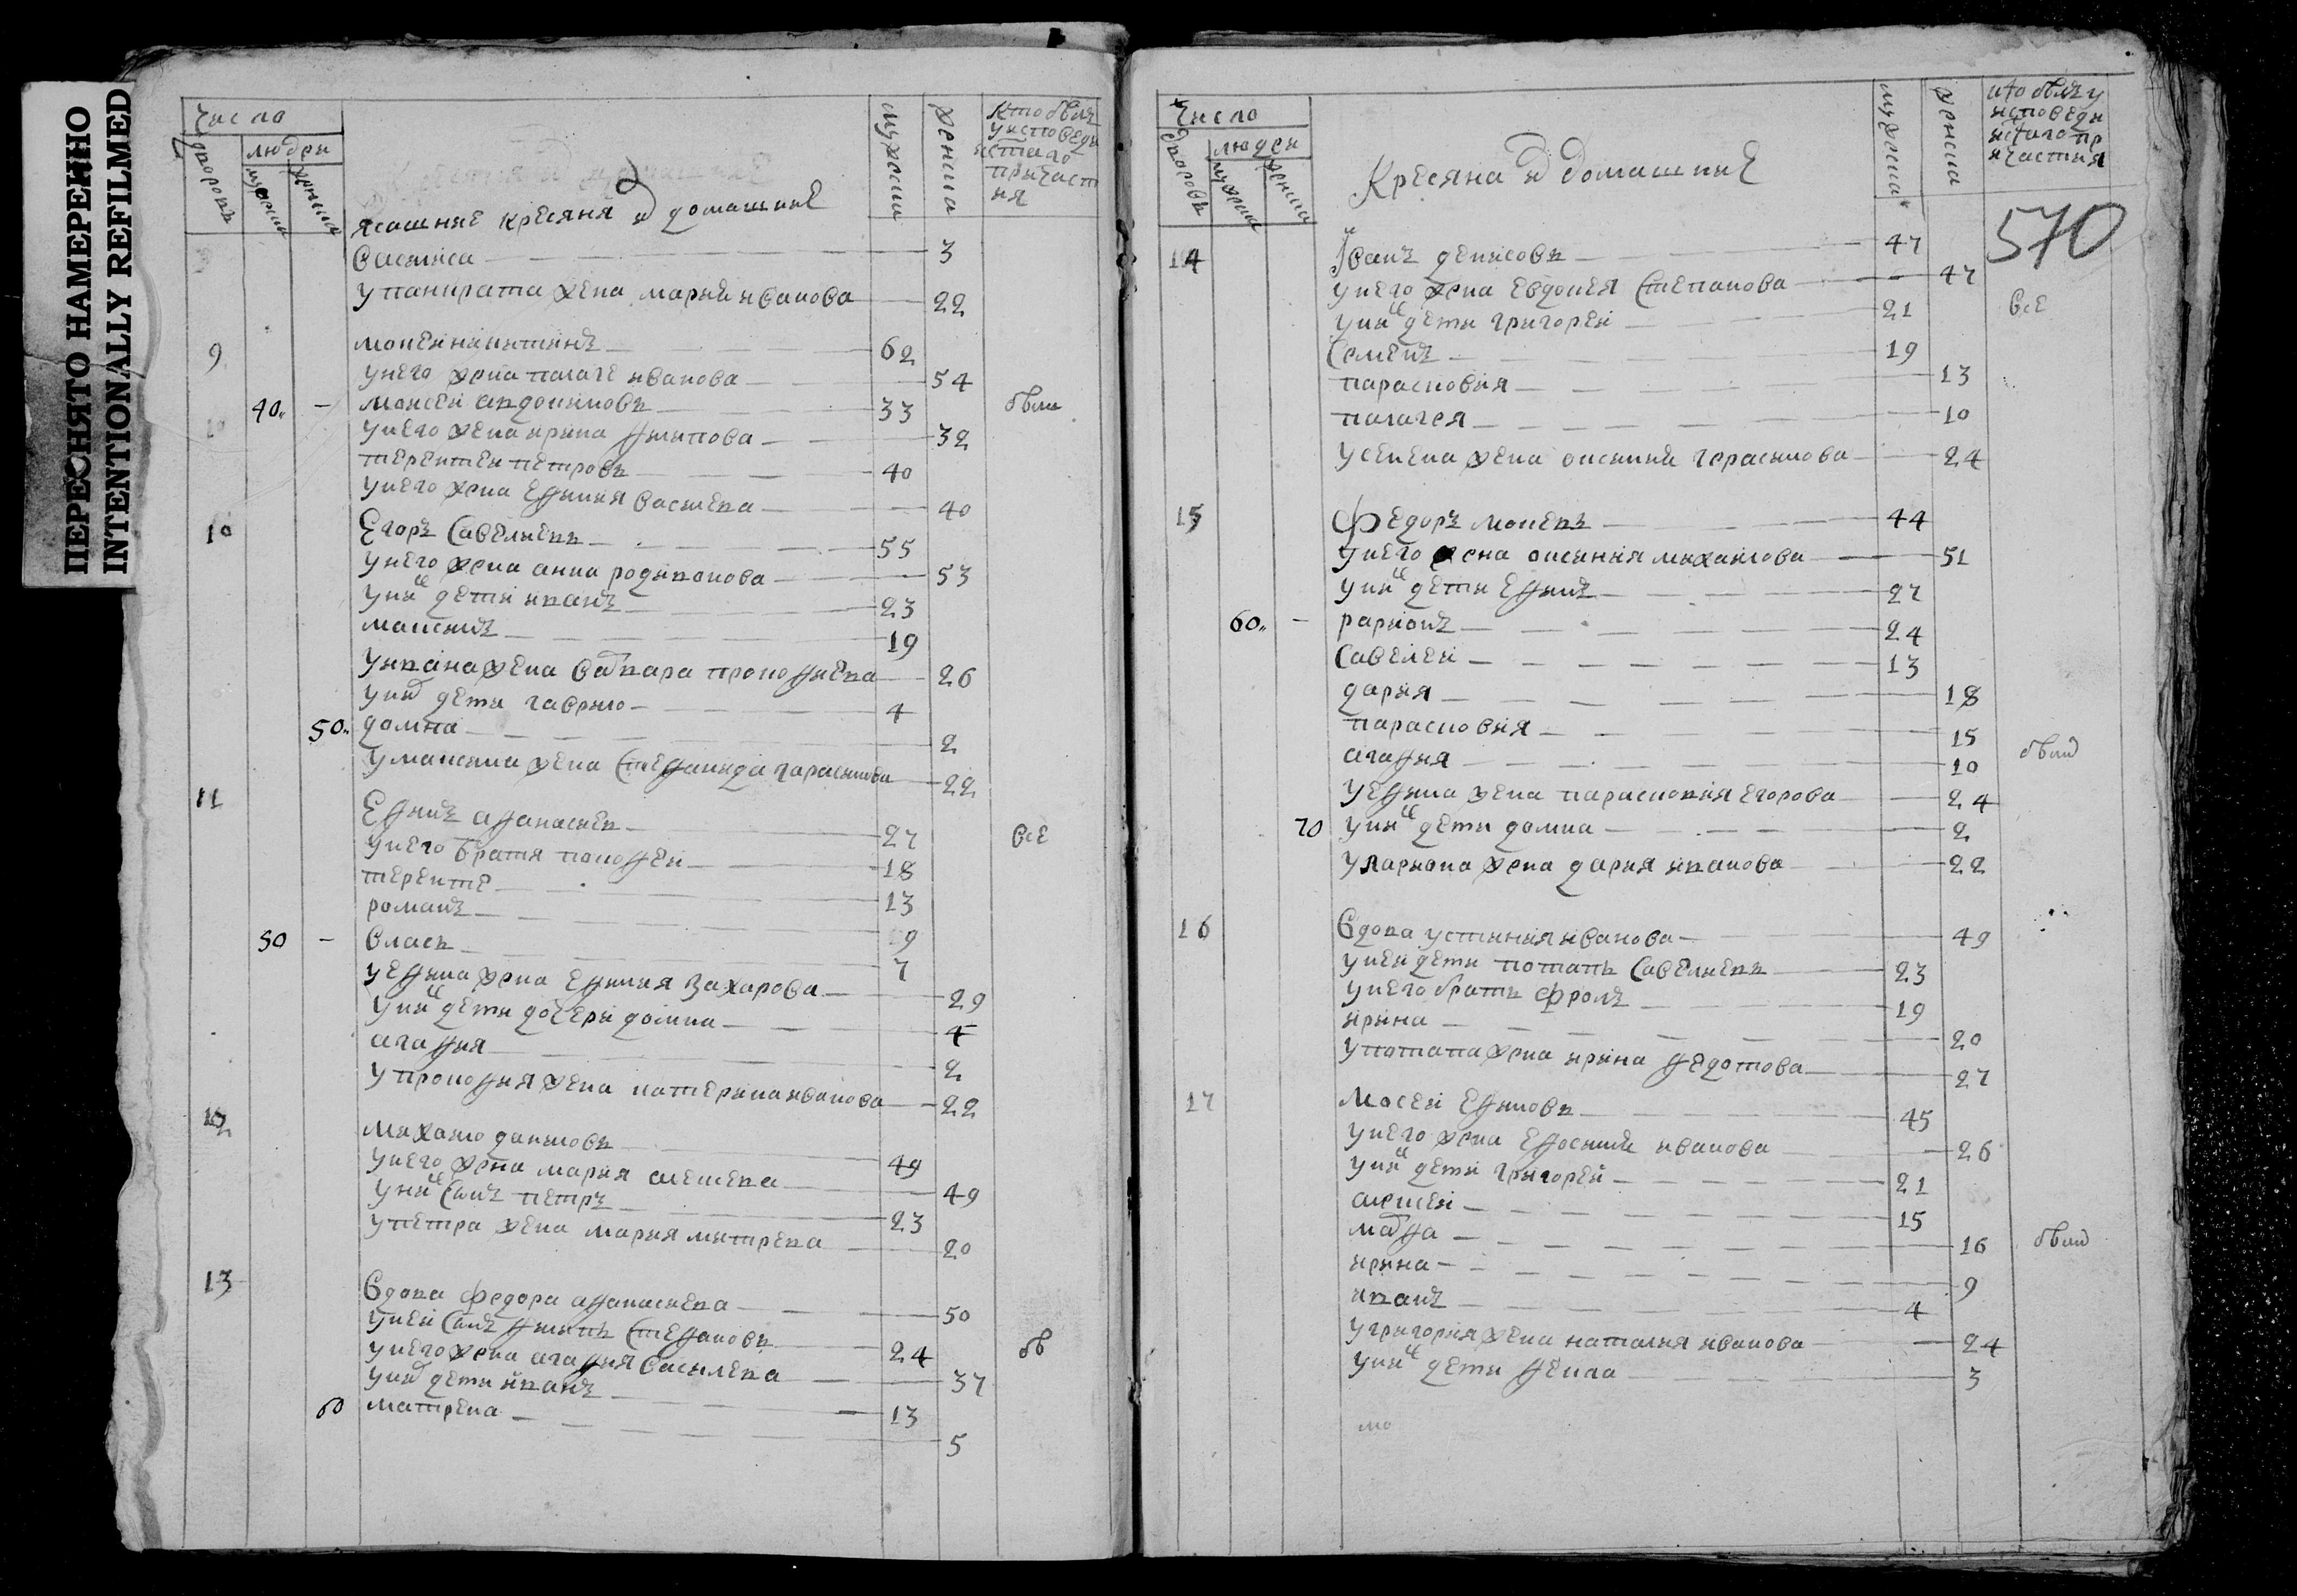 ПЕРЕСНЯТО НАМЕРЕННО
INTENTIONALLY REFILMED
Число
людеи
дворовъ
мужеска
женска
ясашние кресяня и домашние
мужеска
женска
кто были
у исповеди
исттаго
причаст
ия
Василиса 3
у панкрата жена мария иванова 22
9
мокеи никитинъ 62
у него жена палаге иванова 54
40 -
моисеи авдокимовъ 33
были
у него жена ирина филипова 32
терентеи петровъ 40
у него жена ефимия васильева 40
10
Егоръ Савельевъ 55
у него жена анна родивонова 53
у них дети иванъ 23
максимъ 19
у ивана жена варвара прокофиева 26
у них дети гаврило 4
50
домна 2
у максима жена степанида гарасимова 22
11
Ефимъ афанасиевъ 27
все
у него братя прокофеи 18
теренте 13
романъ 9
50 -
власъ 7
у ефима жена ефимия захарова 29
у них дети дочери домна 4
агафия 2
у прокофия жена катерина иванова 22
12
михаило даниловъ 49
у него жена мария алексеева 49
у них сынъ петръ 23
у петра жена мария митрева 20
13
Вдова федора афанасиева 50
у неи сынъ филипъ степановъ 24
об
у него жена агафия василева 37
у них дети иванъ 13
60
матрена 5
Число
людеи
дворовъ
мужеска
женска
Кресяна и домашние
мужеска
женска
кто были у
исповеди
исттаго пр
ичастия
570
14
Иванъ денисовъ 47
у него жена Евдокея Степанова 47
все
у них дети григореи 21
Семенъ 19
парасковия 13
палагея 10
у семена жена оксиния герасимова 24
15
Федоръ мокеевъ 44
у него жена оксиния михаилова 51
у них дети Ефимъ 27
60 -
лариионъ 24
Савелеи 13
дария 18
парасковия 15
были
агафия 10
у ефима жена парасковия егорова 24
70
у них дети домна 2
у лариона жена дария иванова 22
16
Вдова устиния иванова 49
у неи дети потапъ Савельевъ 23
у него братъ фролъ 19
ирина 20
у потапа жена ирина федотова 27
17
Мосеи Ефимовъ 45
у него жена Ефросиния иванова 26
у них дети григореи 21
алексеи 15
марфа 16
были
ирина 9
иванъ 4
у григория жена наталия иванова 24
у них дети фекла 3
мо